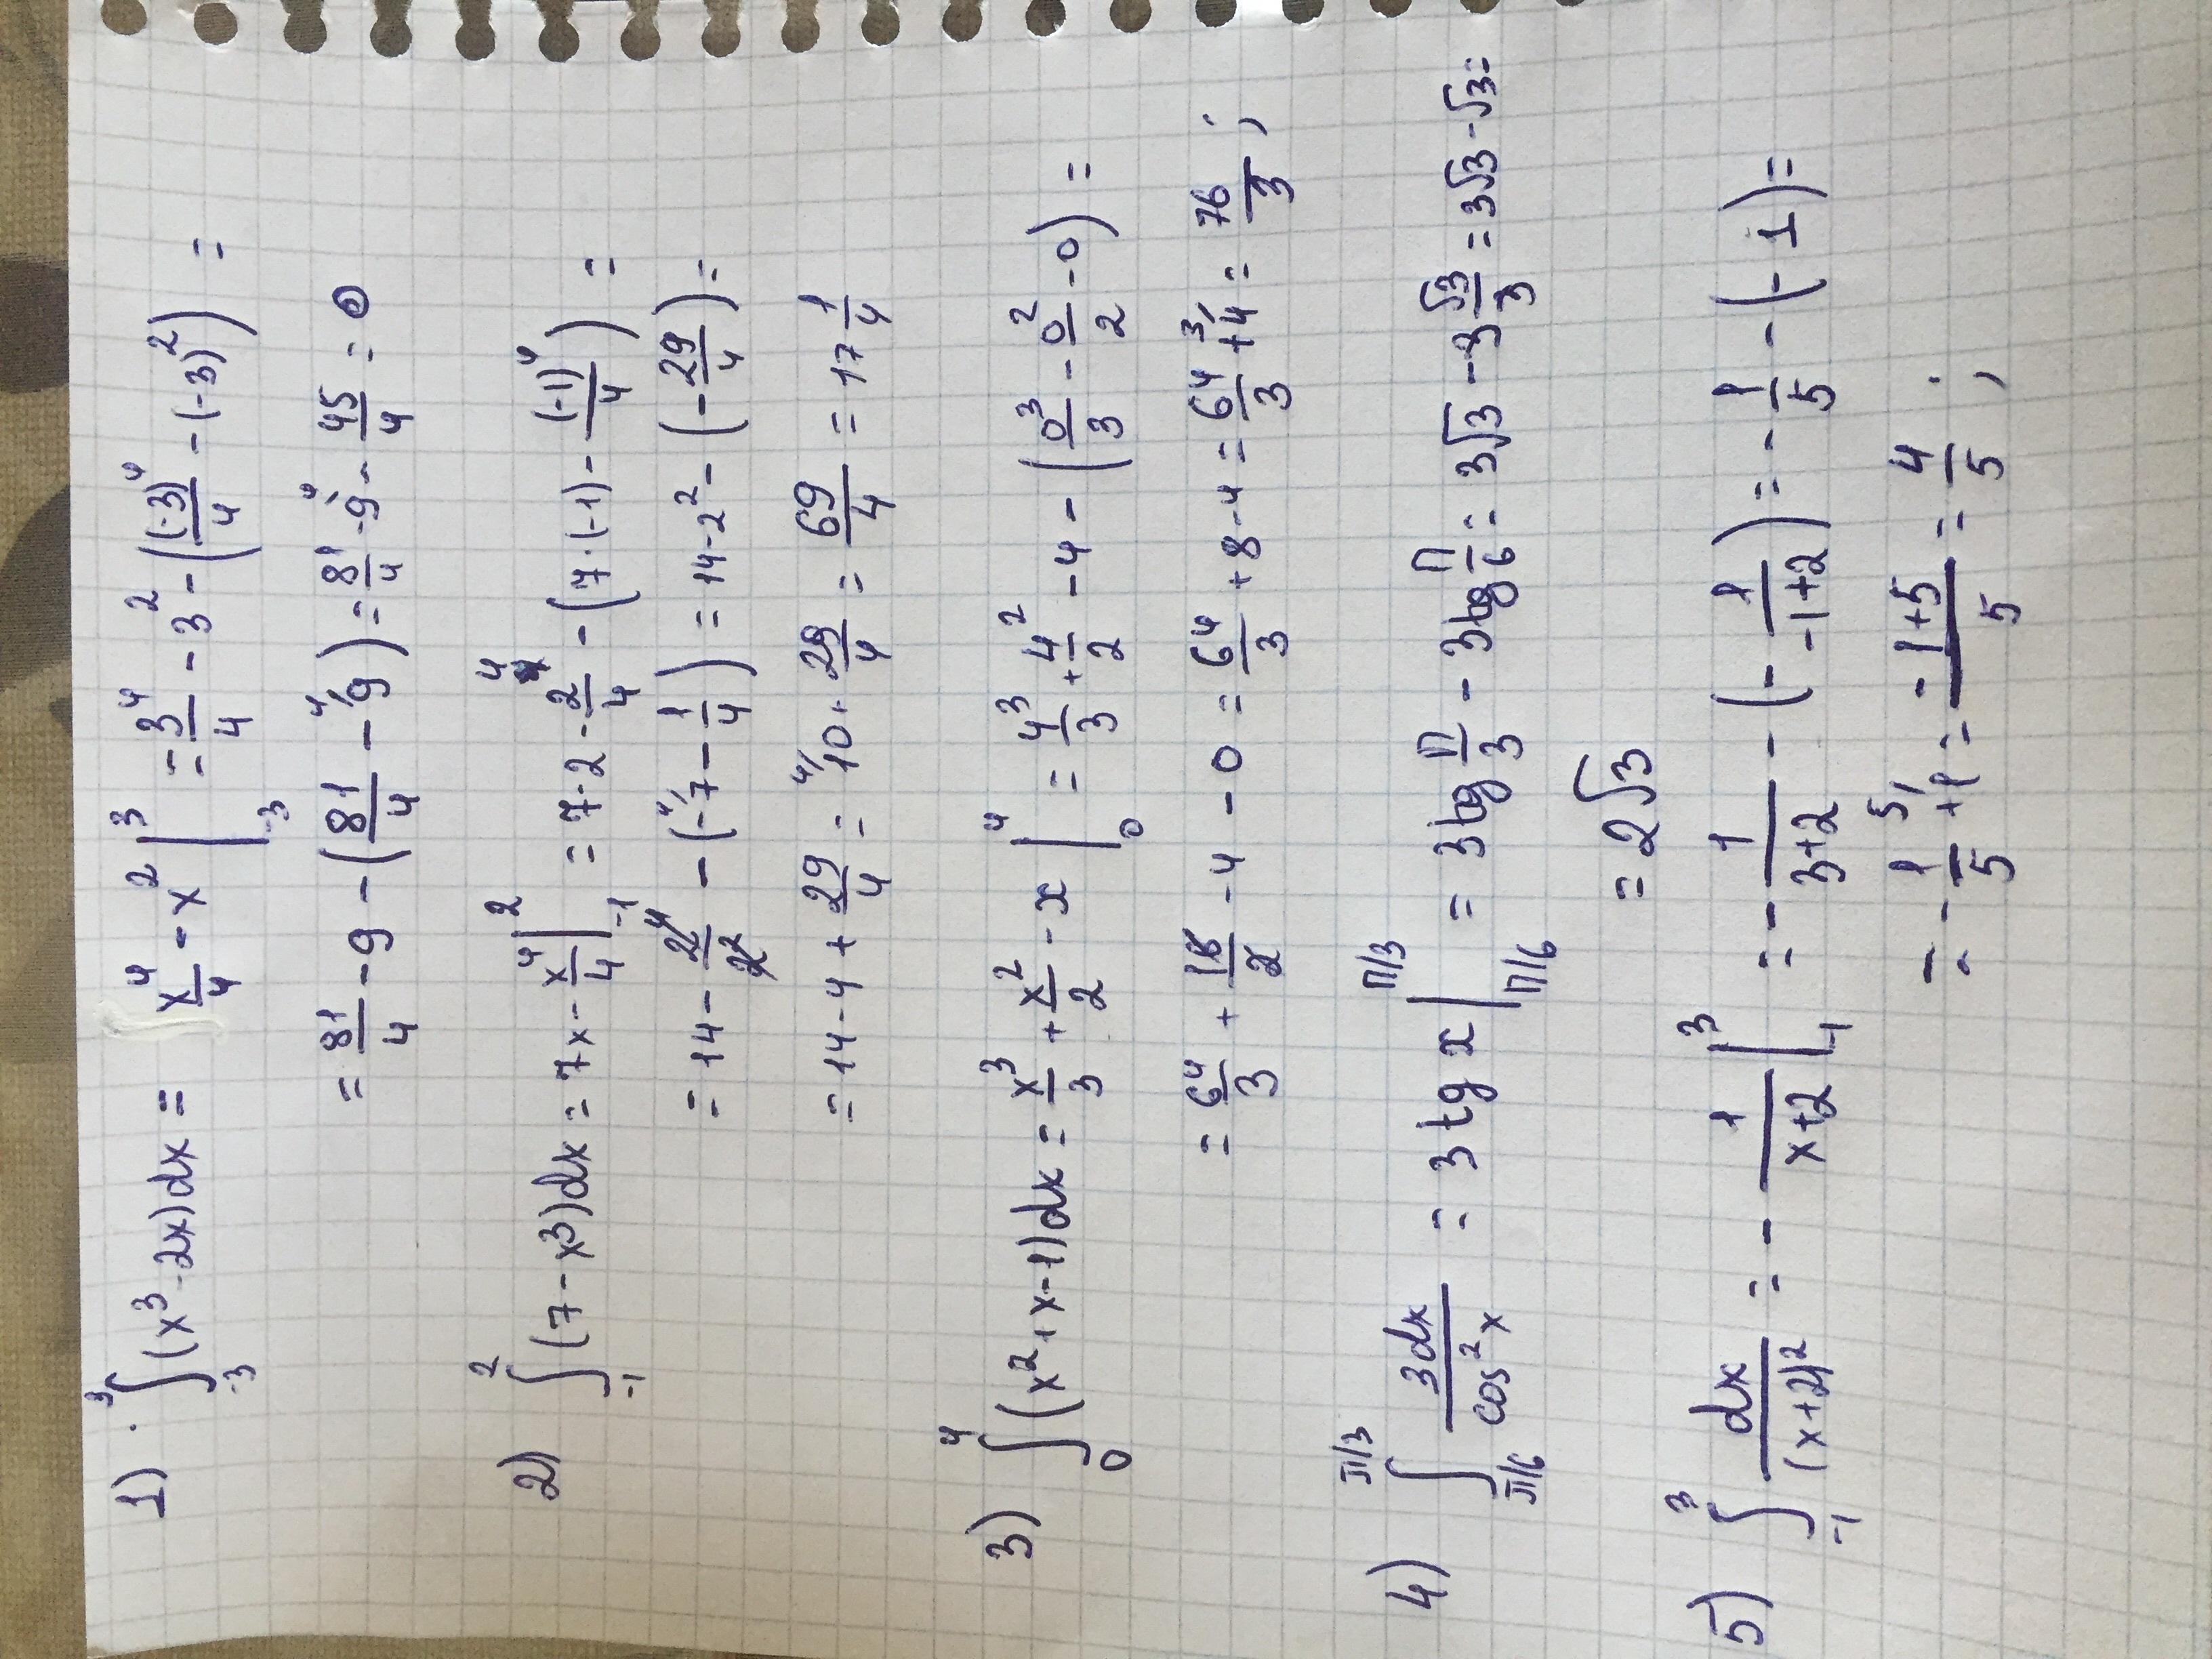 1) ∫₋₃³ (x³ - 2x)dx = x⁴/4 - x² |₋₃³ = 3⁴/4 - 3² - ((-3)⁴/4 - (-3)²) =
= 81/4 - 9 - (81/4 - 9) = 81/4 - 9 - 45/4 = 0
2) ∫₋₁² (7 - x³)dx = 7x - x⁴/4 |₋₁² = 7·2 - 2⁴/4 - (7·(-1) - (-1)⁴/4) =
= 14 - 2⁴/2² - (-7 - 1/4) = 14 - 2² - (-29/4) =
= 14 - 4 + 29/4 = 10 + 29/4 = 69/4 = 17 1/4
3) ∫₀⁴ (x² + x - 1)dx = x³/3 + x²/2 - x |₀⁴ = 4³/3 + 4²/2 - 4 - (0³/3 - 0²/2 - 0) =
= 64/3 + 16/2 - 4 - 0 = 64/3 + 8 - 4 = 64/3 + 4 = 76/3 ;
4) ∫π/6^π/3 3dx/cos²x = 3 tg x |π/6^π/3 = 3tg π/3 - 3tg π/6 = 3√3 - 3 √3/3 = 3√3 - √3 =
= 2√3
5) ∫₋₁³ dx/(x+2)² = - 1/(x+2) |₋₁³ = - 1/(3+2) - (- 1/(-1+2)) = - 1/5 - (-1) =
= - 1/5 + 1 = (-1+5)/5 = 4/5 ;